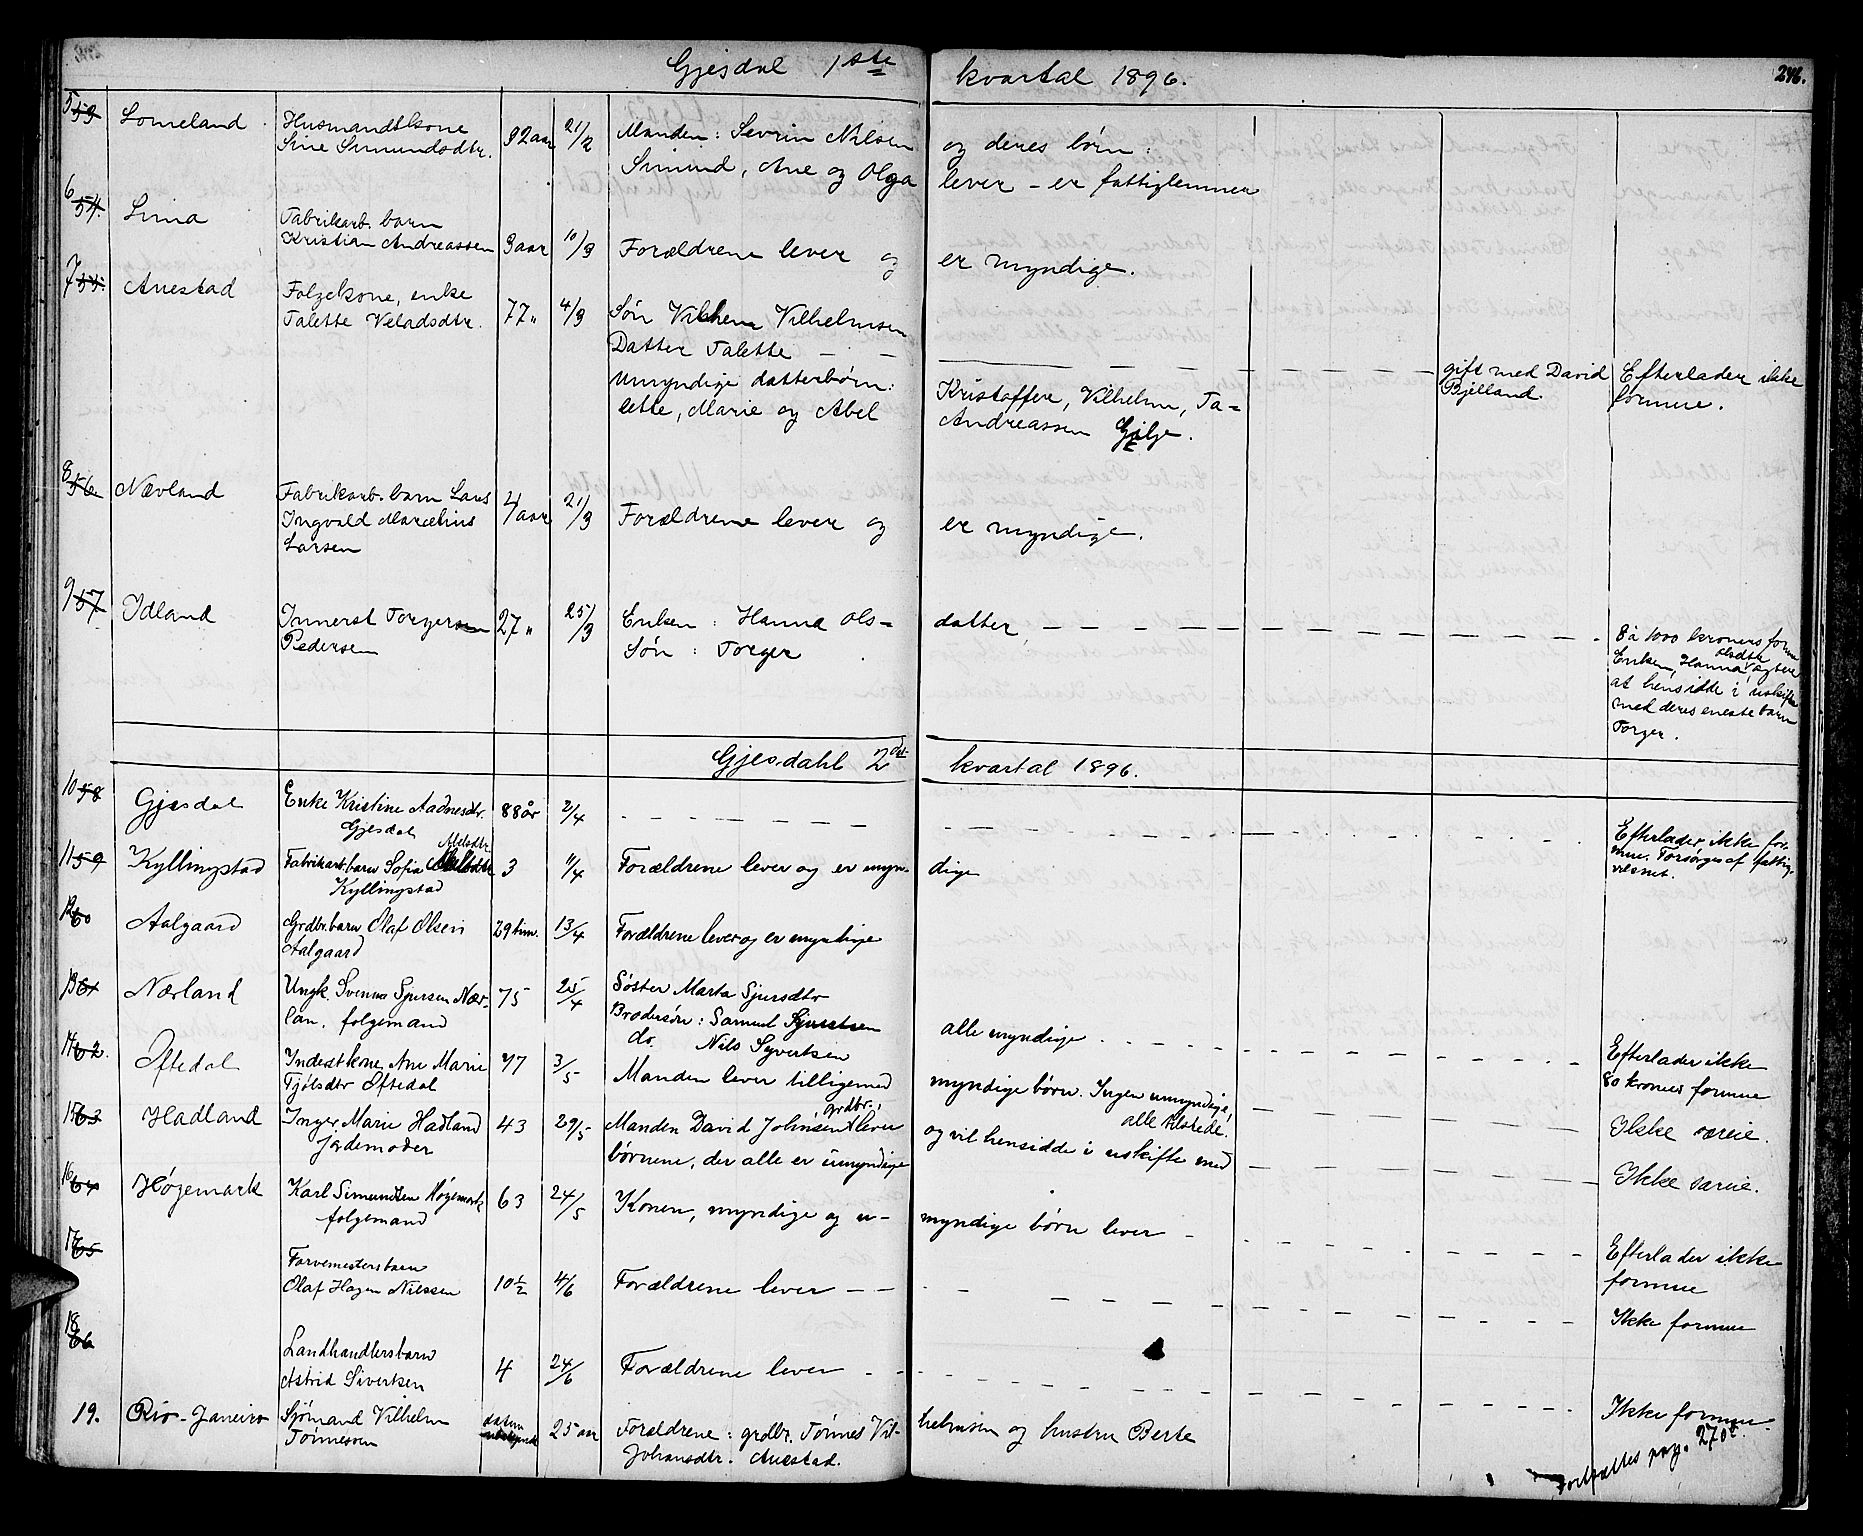 Gjesdal 1ste kvartal 1896. 246.
5 53 Lomeland Husmandskone 32 aar 21/2 Manden: Sevrin Nilsen og deres börn:
Sine Simundsdtr. Simund, Ane og Olga lever – er fattiglemmer
6 54. Lima Fabrikarb. barn
Kristian Andreassen 3 aar 10/3 Forældrene lever og er myndige.
7 55. Auestad Folgekone, enke
Talette Veladsdtr. 77 " 4/3 Sön Vilhem Vilhelmsen
Datter Talette — — gift med David Efterlader ikke
Bjelland. formue.
Umyndige datterbörn: Kristoffer, Vilhelm, Ta=
lette, Marie og Abel Andreassen Gilje.
8 56 Nævland Fabrikarb. barn Lars 4 aar 21/3 Forældrene lever og er myndige.
Ingvald Marcelius
Larsen
9 57. Idland Innerst Torgersen 27 " 25/3 Enken: Hanna Ols= datter,
Pedersen Sön: Torger
8 à 1000 kroners formue
Enken, Hanna Olsdtr, agter
at hensidde i uskifte
med deres eneste barn
Torger.
Gjesdahl 2det kvartal 1896.
10 58 Gjesdal Enke Kristine Aadnesdtr. 88 år 2/4 Efterlader ikke for-
Gjesdal mue. Forsörges af fattig-
væsnet.
11 59 Kyllingstad Fabrikarb. barn Sofia Abelsdtr 3 11/4 Forældrene lever og er myn- dige
Kyllingstad
12 60 Aalgaard Grdbr. barn Olaf Olsen 29 tim. 13/4 Forældrene lever og er myndige
Aalgaard
13 61 Nærland Ungk. Svenne Sjursen Nær- 75 25/4 Söster Marta Sjursdtr
lan. folgemand Brodersön: Samuel Sjurssen
do. Nils Syvertsen alle myndige Efterlader ikke
80 kroners formue
14 62. Oftedal Inderstkone Ane Marie 77 3/5 Manden lever tilligemed myndige börn. Ingen umyndige, Ikke særeie.
Tjölsdtr Oftedal alle tilstede.
15 63 Hadland Inger Marie Hadland 43 29/5 Manden David Johnsen grdbr., lever og vil hensidde i uskifte med Ikke særeie.
jordemoder börnene, der alle er umyndige
16 64 Høgemark Karl Simundsen Høgemark 63 24/5 Konen, myndige og u- myndige börn lever – Efterlader ikke
folgemand formue
17 65 Farvemestersbarn
Olaf Hagen Nielsen 10 1/2 4/6 Forældrene lever — — Ikke formue
18 66 Landhandlersbarn
Astrid Sivertsen 4 24/6 Forældrene lever Ikke formue
19. Rio-Janeiro Sjömand Vilhelm datum ubekjendt 25 aar Forældrene: grdbr. Tönnes Vil- helmsen og hustru Berte
Tönnessen Johansdtr. Auestad.
Fortsættes pag. 270.